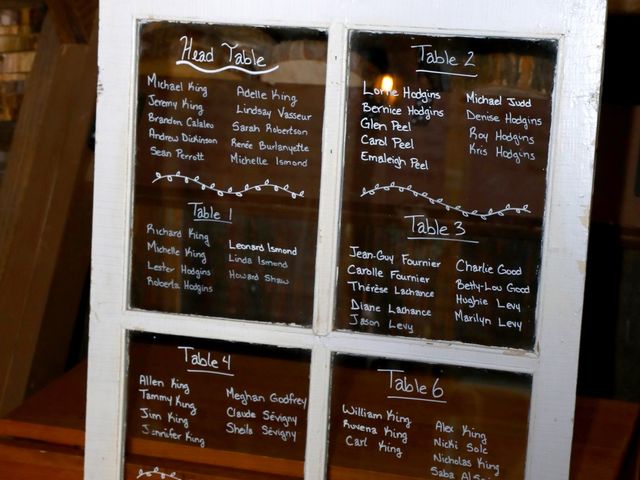 Head Table
Michael King
Jeremy King
Brandon Calaleu
Andrew Dickinson
Sean Perrott
Adelle King
Lindsay Vasseur
Sarah Robertson
Renée Burlanyette
Michelle Ismond
Table 2
Lorne Hodgins
Bernice Hodgins
Glen Peel
Carol Peel
Emaleigh Peel
Michael Judd
Denise Hodgins
Roy Hodgins
Kris Hodgins
Table 1
Richard King
Michelle King
Lester Hodgins
Roberta Hodgins
Leonard Ismond
Linda Ismond
Howard Shaw
Table 3
Jean-Guy Fournier
Carolle Fournier
Thérèse Lachance
Diane Lachance
Jason Levy
Charlie Good
Betty-Lou Good
Hughie Levy
Marilyn Levy
Table 4
Allen King
Tammy King
Jim King
Jennifer King
Meghan Godfrey
Claude Sévigny
Sheila Sévigny
Table 6
William King
Ruvena King
Carl King
Alex King
Nicki Sole
Nicholas King
Saba